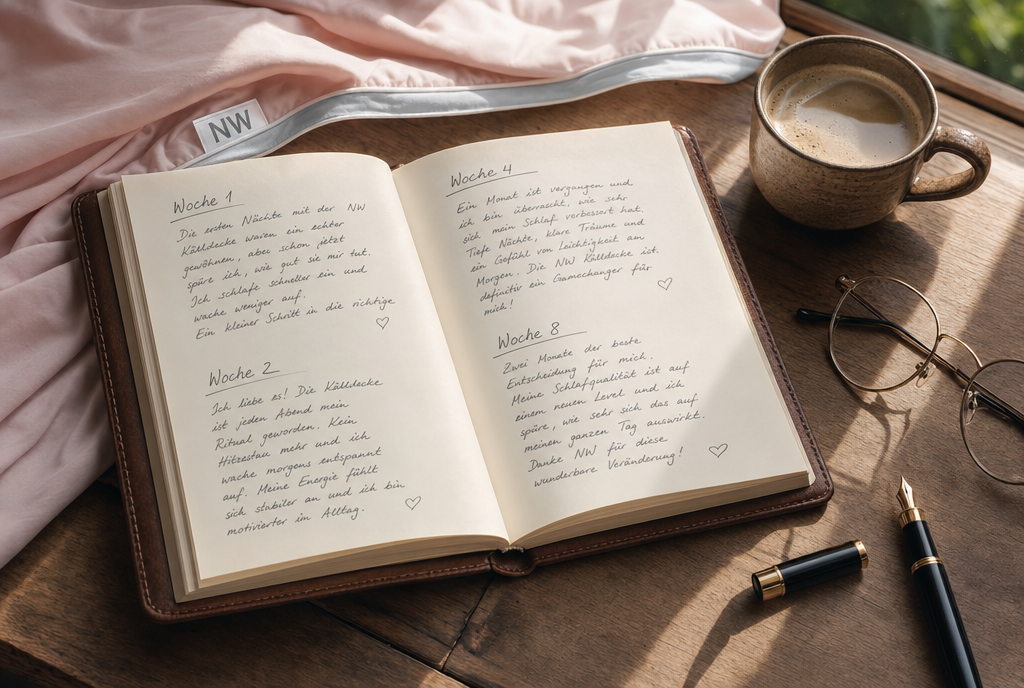 NW
Woche 1
Die ersten Nächte mit der NW
Källdecke waren ein echter
gewöhnen, aber schon jetzt
spüre ich, wie gut sie mir tut.
Ich schlafe schneller ein und
wache weniger auf.
Ein kleiner Schritt in die richtige
Woche 2
Ich liebe es! Die Källdecke
ist jeden Abend mein
Ritual geworden. Kein
Hitzestau mehr und ich
wache morgens entspannt
auf. Meine Energie fühlt
sich stabiler an und ich bin
motivierter im Alltag.
Woche 4
Ein Monat ist vergangen und
ich bin überrascht, wie sehr
sich mein Schlaf verbessert hat.
Tiefe Nächte, klare Träume und
ein Gefühl von Leichtigkeit am
Morgen. Die NW Källdecke ist
definitiv ein Gamechanger für
mich!
Woche 8
Zwei Monate der beste
Entscheidung für mich.
Meine Schlafqualität ist auf
einem neuen Level und ich
spüre, wie sehr sich das auf
meinen ganzen Tag auswirkt.
Danke NW für diese
wunderbare Veränderung!